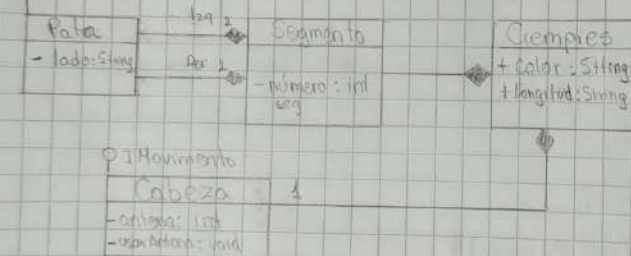 Pata
- lado: String
Izq 2
Der 2
Segmento
- número: int
seg
Ciempies
+ Color: String
+ Longitud: String
IMovimiento
Cabeza 1
- antena: int
void